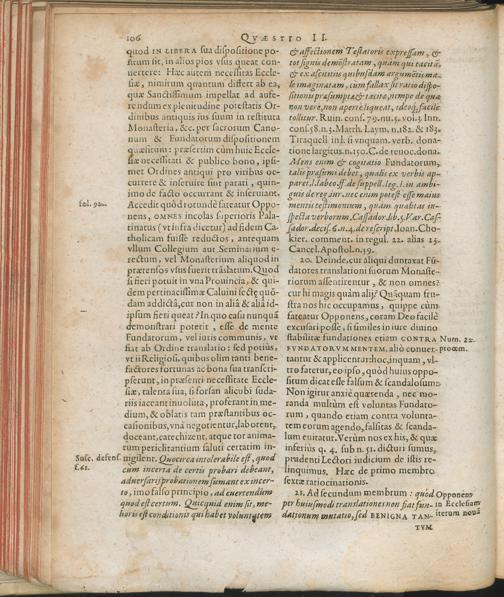 106 QVÆSTIO II.
quod IN LIBERA sua dispositione po-
situm sit, in alios pios vsus queat con-
uertere: Hæc autem necessitas Eccle-
siæ, nimirum quantum differt ab ea,
quæ Sanctissimum impellat ad aufe-
rendum ex plenitudine potestatis Or-
dinibus antiquis ius suum in restituta
Monasteria, &c. per sacrorum Cano-
num & Fundatorum dispositionem
quæsitum: præsertim cùm huic Eccle-
siæ necessitati & publico bono, ipsi-
met Ordines antiqui pro viribus oc-
currere & inseruire sint parati, quin-
imo de facto occurrant & inseruant.
Accedit quòd rotundè fateatur Oppo-
fol. 92. nens, OMNES incolas superioris Pala-
tinatus (vt infra dicetur) ad fidem Ca-
tholicam fuisse reductos, antequam
vllum Collegium aut Seminarium e-
rectum, vel Monasterium aliquod in
prætensos vsus fuerit trāslatum. Quod
si fieri potuit in vna Prouincia, & qui-
dem pertinacissimæ Caluini sectæ quō-
dam addictâ, cur non in aliâ & aliâ id-
ipsum fieri queat? In quo casu nunquā
demonstrari poterit, esse de mente
Fundatorum, vel iuris communis, vt
fiat ab Ordine translatio: sed potiùs,
vt ij Religiosi, quibus olim tanti bene-
factores fortunas ac bona sua transcri-
pserunt, in præsenti necessitate Eccle-
siæ, talenta sua, si forsan alicubi suda-
riis iaceant inuoluta, proferant in me-
dium, & oblatis tam præstantibus oc-
casionibus, vnà negotientur, laborent,
doceant, catechizent, atque tot anima-
rum periclitantium saluti certatim in-
Susc. defens. uigilent. Quocirca intolerabile est, quod
f. 61. cum incerta de certis probari debeant,
aduersarij probationem sumant ex incer-
to, imo falso principio, ad euertendum
quod est certum. Quicquid enim sit, me-
lioris est conditionis qui habet voluntatem
& affectionem Testatoris expressam, &
tot signis demōstratam, quàm qui tacitā,
& ex ascititiis quibusdam argumētis ma-
le imaginatam, cùm fallax sit ratio dispo-
sitionis præsumptæ & tacitæ, nimpe de quâ
non verè, non apertè liqueat, ideoq́; facilè
tollitur. Ruin. cons. 79. nu. 5. vol. 3. Inn.
cons. 58. n. 3. Matth. Laym. n. 182. & 183.
Tiraquell. in l. si vnquam. verb. dona-
tione largitus. n. 150. C. de reuoc. dona.
Mens enim & cogitatio Fundatorum,
talis præsumi debet, qualis ex verbis ap-
paret, l. Labeo. ff. de suppell. leg. l. in ambi-
guis de reg. iur. nec enim potest esse maius
mentis testimonium, quàm qualitas in-
specta verborum, Cassador. lib. 5. Var. Cas-
sador. decis. 6. n. 4. de rescript. Ioan. Cho-
kier. comment. in regul. 22. aliàs 23.
Cancel. Apostol. n. 59.
20. Deinde, cur aliqui duntaxat Fū-
datores translationi suorum Monaste-
riorum assentirentur, & non omnes?
cur hi magis quàm alij? Quāquam fru-
stra nos hîc occupamus, quippe cùm
fateatur Opponens, coram Deo facilè
excusari posse, si similes in iure diuino
stabilitæ fundationes etiam CONTRA Num. 22.
FVNDATORVM MENTEM, aliò conuer- proœm.
tantur & applicentur: hoc, inquam, vl-
tro fatetur, eo ipso, quòd huius oppo-
situm dicat esse falsum & scandalosum.
Non igitur anxiè quærenda, nec mo-
randa multùm est voluntas Fundato-
rum, quando etiam contra volunta-
tem eorum agendo, falsitas & scanda-
lum euitatur. Verùm nos ex his, & quæ
inferiùs q. 4. sub n. 51. dicturi sumus,
prudenti Lectori iudicium de istis re-
linquimus. Hæc de primo membro
sextæ ratiocinationis.
21. Ad secundum membrum: quòd Opponens
per huiusmodi translationes non fiat fun- in Ecclesiam
dationum mutatio, sed BENIGNA TAN- iterum nouā
TVM